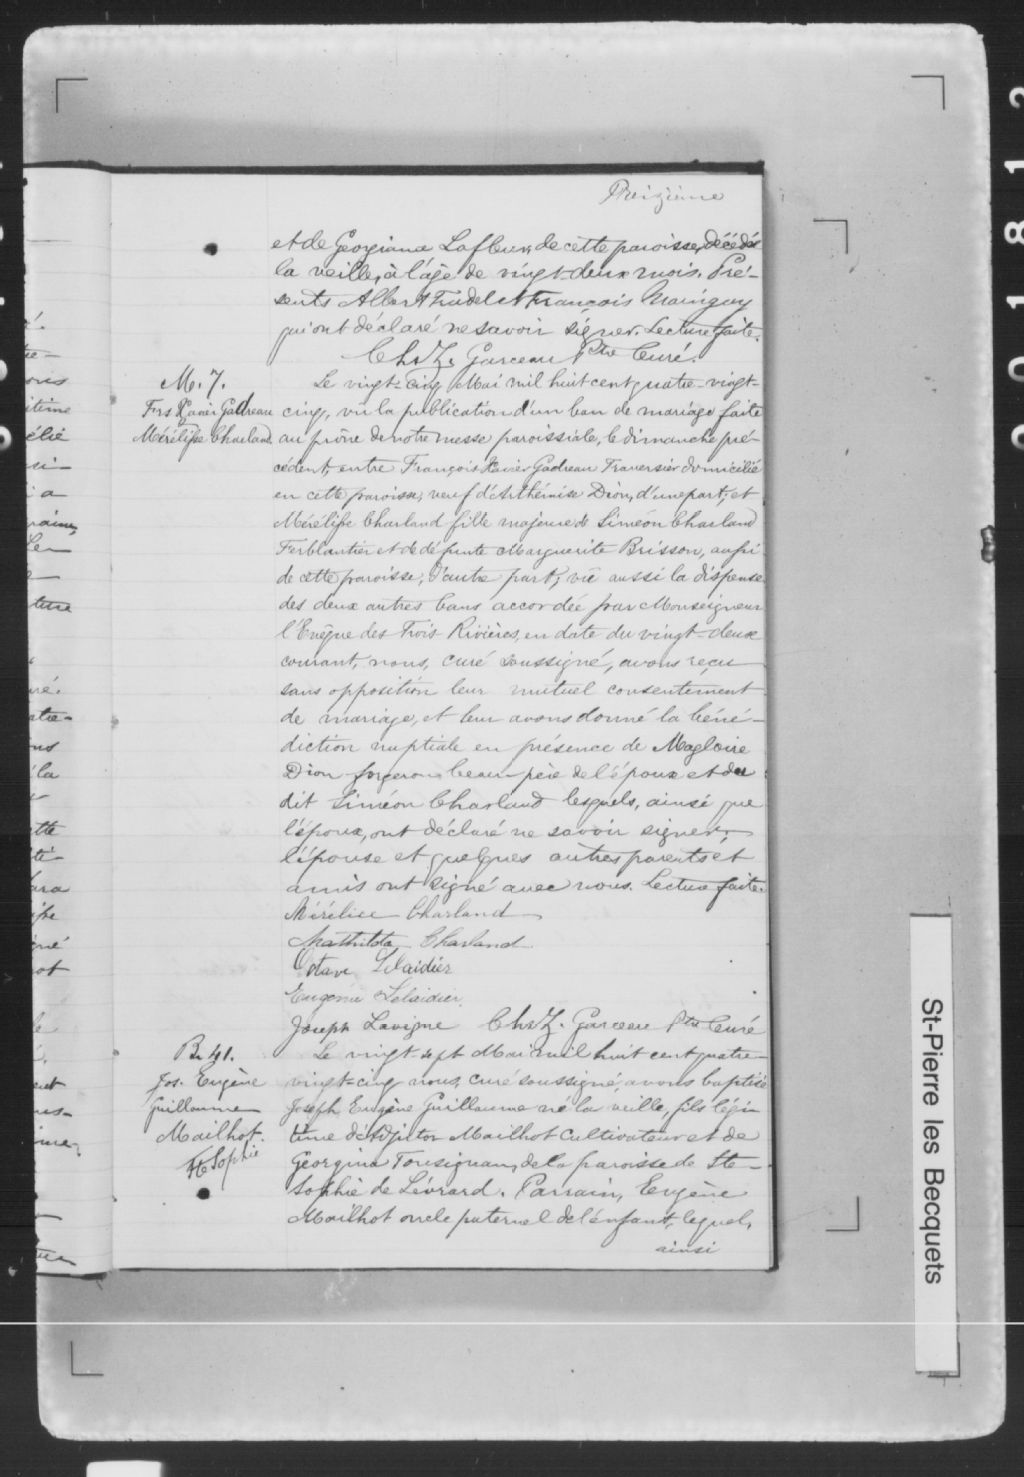 Treizième
et de Georgiana Lafleur, de cette paroisse, décédée
la veille, à l'âge de vingt-deux mois. Pré-
sents Albert Trudel et François Mainguy
qui ont déclaré ne savoir signer. Lecture faite.
Chs Z. Garceau Ptre Curé.
M. 7.
Frs Xavier Gadreau
Mérélisse Charland
Le vingt-cinq Mai mil huit cent quatre-vingt-
cinq, vû la publication d'un ban de mariage faite
au prône de notre messe paroissiale, le dimanche pré-
cédent, entre François Xavier Gadreau Traversier domicilié
en cette paroisse, veuf d'Arthémise Dion, d'une part, et
Mérélisse Charland fille majeure de Siméon Charland
Ferblantier et de défunte Marguerite Brisson, aussi
de cette paroisse, d'autre part; vû aussi la dispense
des deux autres bans accordée par Monseigneur
l'Evêque des Trois Rivières, en date du vingt-deux
courant, nous, curé soussigné, avons reçu
sans opposition leur mutuel consentement
de mariage, et leur avons donné la béné-
diction nuptiale en présence de Magloire
Dion forgeron beau-père de l'époux et du
dit Siméon Charland lesquels, ainsi que
l'époux, ont déclaré ne savoir signer;
l'épouse et quelques autres parents et
amis ont signé avec nous. Lecture faite.
Mérélise Charland
Mathilda Charland
Octave Lelaidier
Eugénie Lelaidier
Joseph Lavigne Chs Z. Garceau Ptre Curé
B. 41.
Jos. Eugène
Guillaume
Mailhot.
Ste Sophie
Le vingt-sept Mai mil huit cent quatre-
vingt-cinq nous, curé soussigné, avons baptisé
Joseph Eugène Guillaume né la veille, fils légi-
time d'Adjutor Mailhot Cultivateur et de
Georgina Tousignant, de la paroisse de Ste-
Sophie de Lévrard. Parrain, Eugène
Mailhot oncle paternel de l'enfant, lequel,
ainsi
St-Pierre les Becquets